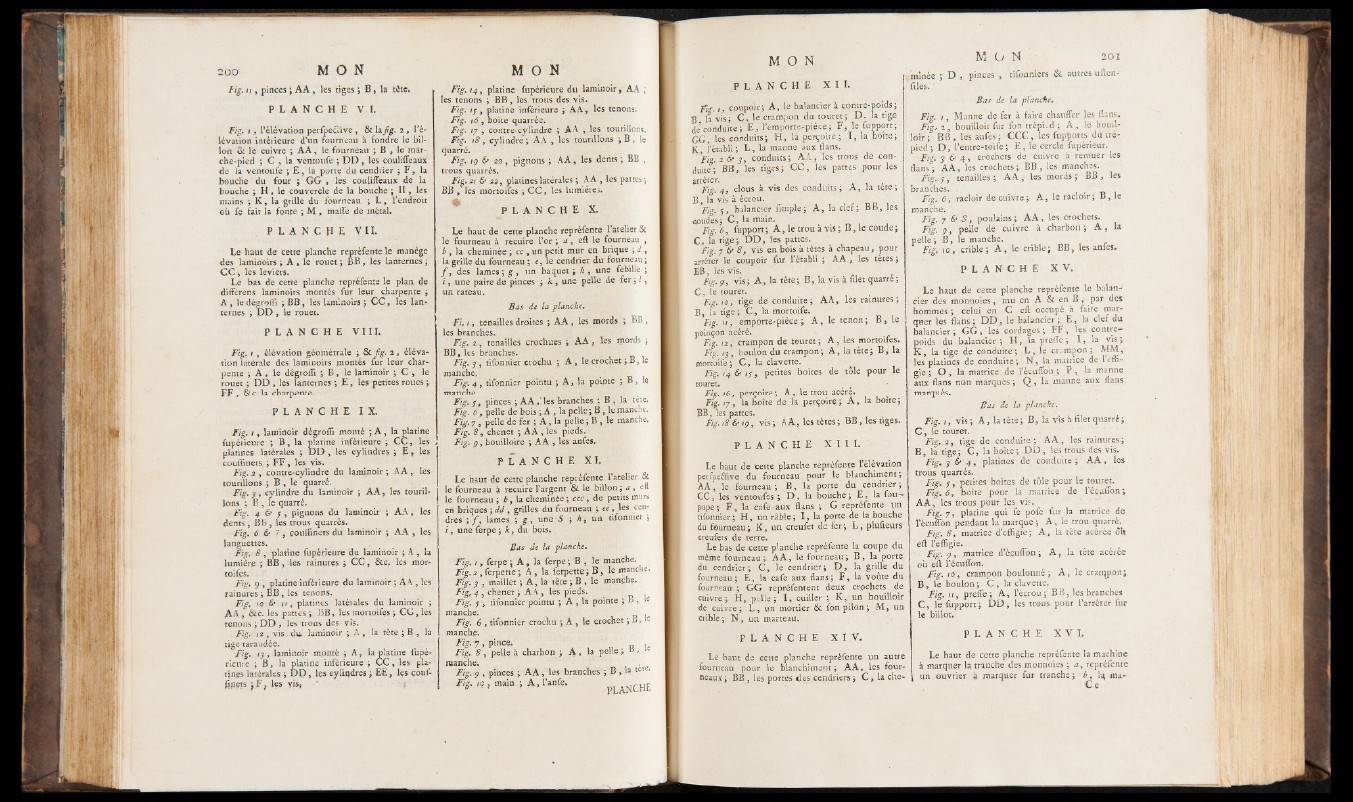 200 MON MON
Fig. 11, pinces ; AA, les tiges ; B, la tête.
PLANCHE VI.
Fig. 1, l'élévation perspective, & la fig. 2, l'é-
lévation intérieure d'un fourneau à fondre le bil-
lon & le cuivre ; AA, le fourneau ; B, le mar-
che-pied ; C, la ventouse ; DD, les coulisseaux
de la ventouse ; E, la porte du cendrier ; F, la
bouche du four ; GG, les coulisseaux de la
bouche ; H, le couvercle de la bouche ; II, les
mains ; K, la grille du fourneau ; L, l'endroit
où se fait la fonte ; M, masse de métal.
PLANCHE VII.
Le haut de cette planche représente le manège
des laminoirs ; A, le rouet ; BB, les lanternes ;
CC, les leviers.
Le bas de cette planche représente le plan de
différens laminoirs montés sur leur charpente ;
A, le dégrossi ; BB, les laminoirs ; CC, les lan-
ternes ; DD, le rouet.
PLANCHE VIII.
Fig. 1, élévation géométrale ; & fig. 2, éléva-
tion latérale des laminoirs montés sur leur char-
pente ; A, le dégrossi ; B, le laminoir ; C, le
rouet ; DD, les lanternes ; E, les petites roues ;
FF, &c. la charpente.
PLANCHE IX.
Fig. 1, laminoir dégrossi monté ; A, la platine
supérieure ; B, la platine inférieure ; CC, les
platines latérales ; DD, les cylindres ; E, les
coussinets ; FF, les vis.
Fig. 2, contre-cylindre du laminoir ; AA, les
tourillons ; B, le quarré.
Fig. 3, cylindre du laminoir ; AA, les touril-
lons ; B, le quarré.
Fig. 4 & 5, pignons du laminoir ; AA, les
dents, BB, les trous quarrés.
Fig. 6 & 7, coussinets du laminoir ; AA, les
languettes.
Fig. 8, platine supérieure du laminoir ; A, la
lumière ; BB, les rainures ; CC, &c. les mor-
toises.
Fig. 9, platine inférieure du laminoir ; AA, les
rainures ; BB, les tenons.
Fig. 10 & 11, platines latérales du laminoir ;
AA, &c. les pattes ; BB, les mortoises ; CC, les
tenons ; DD, les trous des vis.
Fig. 12, vis du laminoir ; A, la tête ; B, la
tige taraudée.
Fig. 13, laminoir monté ; A, la platine supé-
rieure ; B, la platine inférieure ; CC, les pla-
tines latérales ; DD, les cylindres ; EE, les cous-
sinets ; F, les vis,
Fig. 14, platine supérieure du laminoir, AA ;
les tenons ; BB, les trous des vis.
Fig. 15, platine inférieure ; AA, les tenons.
Fig. 16, boîte quarrée.
Fig. 17, contre-cylindre ; AA, les tourillons.
Fig. 18, cylindre ; AA, les tourillons ; B, le
quarré.
Fig. 19 & 20, pignons ; AA, les dents ; BB,
trous quarrés.
Fig. 21 & 22, platines latérales ; AA, les pattes ;
BB, les mortoises ; CC, les lumières.
PLANCHE X.
Le haut de cette planche représente l'atelier &
le fourneau à recuire l'or ; a, est le fourneau,
b, la cheminée ; cc, un petit mur en brique ; d,
la grille du fourneau ; e, le cendrier du fourneau ;
f, des lames ; g, un baquet ; h, une sebille ;
i, une paire de pinces ; k, une pelle de fer ; l,
un rateau.
Bas de la planche.
Fi. 1, tenailles droites ; AA, les mords ; BB,
les branches.
Fig. 2, tenailles crochues ; AA, les mords ;
BB, les branches.
Fig. 3, tisonnier crochu ; A, le crochet ; B, le
manche.
Fig. 4, tisonnier pointu ; A, la pointe ; B, le
manche
Fig. 5, pinces ; AA, les branches ; B, la tête.
Fig. 6, pelle de bois ; A, la pelle ; B, le manche.
Fig. 7, pelle de fer ; A, la pelle ; B, le manche.
Fig. 8, chenet ; AA, les pieds.
Fig. 9, bouilloire ; AA, les anses.
PLANCHE XI.
Le haut de cette planche représente l'atelier &
le fourneau à recuire l'argent & le billon ; a, est
le fourneau ; b, la cheminée ; ccc, de petits murs
en briques ; dd, grilles du fourneau ; ee, les cen-
dres ; f, lames ; g, une S ; h, un tisonnier ;
i, une serpe ; k, du bois.
Bas de la planche.
Fig. 1, serpe ; A, la serpe ; B, le manche.
Fig. 2, serpette ; A, la serpette ; B, le manche.
Fig. 3, maillet ; A, la tête ; B, le manche.
Fig. 4, chenet ; AA, les pieds.
Fig. 5, tisonnier pointu ; A, la pointe ; B, le
manche.
Fig. 6, tisonnier crochu ; A, le crochet ; B, le
manche.
Fig. 7, pince.
Fig. 8, pelle à charbon ; A, la pelle ; B, le
manche.
Fig. 9, pinces ; AA, les branches ; B, la tête.
Fig. 10, main ; A, l'anse.
PLANCHE
MON MON 201
PLANCHE XII.
Fig. 1, coupoir ; A, le balancier à contre-poids ;
B, la vis ; C, le crampon du touret ; D, la tige
de conduite ; E, l'emporte-pièce ; F, le support ;
GG, les conduits ; H, la perçoire ; I, la boîte ;
K, l'établi ; L, la manne aux flans.
Fig. 2 & 3, conduits ; AA, les trous de con-
duite ; BB, les tiges ; CC, les pattes pour les
arrêter.
Fig. 4, clous à vis des conduits ; A, la tête ;
B, la vis à écrou.
Fig. 5, balancier simple ; A, la clef ; BB, les
coudes ; C, la main.
Fig. 6, support ; A, le trou à vis ; B, le coude ;
C, la tige ; DD, les pattes.
Fig. 7 & 8, vis en bois à têtes à chapeau, pour
arrêter le coupoir sur l'établi ; AA, les têtes ;
BB, les vis.
Fig. 9, vis ; A, la tête ; B, la vis à filet quarré ;
C, le touret.
Fig. 10, tige de conduite ; AA, les rainures ;
B, la tige ; C, la mortoise.
Fig. 11, emporte-pièce ; A, le tenon ; B, le
poinçon acéré.
Fig. 12, crampon de touret ; A, les mortoises.
Fig. 13, boulon du crampon ; A, la tête ; B, la
mortoise ; C, la clavette.
Fig. 14 & 15, petites boîtes de tôle pour le
touret.
Fig. 16, perçoire ; A, le trou acéré.
Fig. 17, la boîte de la perçoire ; A, la boîte ;
BB, les pattes.
Fig. 18 & 19, vis ; AA, les têtes ; BB, les tiges.
PLANCHE XIII.
Le haut de cette planche représente l'élévation
perspective du fourneau pour le blanchiment ;
AA, le fourneau ; B, la porte du cendrier ;
CC, les ventouses ; D, la bouche ; E, la sou-
pape ; F, la case aux flans ; G représente un
tisonnier ; H, un râble ; I, la porte de la bouche
du fourneau ; K, un creuset de fer ; L, plusieurs
creusets de terre.
Le bas de cette planche représente la coupe du
même fourneau ; AA, le fourneau ; B, la porte
du cendrier ; C, le cendrier ; D, la grille du
fourneau ; E, la case aux flans ; F, la voûte du
fourneau ; GG représentent deux crochets de
cuivre ; H, pelle ; I, cuiller ; K, un bouilloir
de cuivre ; L, un mortier & son pilon ; M, un
crible ; N, un marteau.
PLANCHE XIV.
Le haut de cette planche représente un autre
fourneau pour le blanchiment ; AA, les four-
neaux ; BB, les portes des cendriers ; C, la che-
minée ; D, pinces, tisonniers & autres usten-
siles.
Bas de la planche.
Fig. 1, Manne de fer à faire chauffer les flans.
Fig. 2, bouilloir sur son trépied ; A, le bouil-
loir ; BB, les anses ; CCC, les supports du tré-
pied ; D, l'entre-toise ; E, le cercle supérieur.
Fig. 3 & 4, crochets de cuivre à remuer les
flans ; AA, les crochets ; BB, les manches.
Fig. 5, tenailles ; AA, les mords ; BB, les
branches.
Fig. 6, racloir de cuivre ; A, le racloir ; B, le
manche.
Fig. 7 & 8, poulains ; AA, les crochets.
Fig. 9, pelle de cuivre à charbon ; A, la
pelle ; B, le manche.
Fig. 10, crible ; A, le crible ; BB, les anses.
PLANCHE XV.
Le haut de cette planche représente le balan-
cier des monnoies, mu en A & en B, par des
hommes ; celui en C est occupé à faire mar-
quer les flans ; DD, le balancier ; E, la clef du
balancier ; GG, les cordages ; FF, les contre-
poids du balancier ; H, la presse ; I, la vis ;
K, la tige de conduite ; L, le crampon ; MM,
les platines de conduite ; N, la matrice de l'effi-
gie ; O, la matrice de l'écusson ; P, la manne
aux flans non marqués ; Q, la manne aux flans
marqués.
Bas de la planche.
Fig. 1, vis ; A, la tête ; B, la vis à filet quarré ;
C, le touret.
Fig. 2, tige de conduite ; AA, les rainures ;
B, la tige ; C, la boîte ; DD, les trous des vis.
Fig. 3 & 4, platines de conduite ; AA, les
trous quarrés.
Fig. 5, petites boîtes de tôle pour le touret.
Fig. 6, boîte pour la matrice de l'écusson ;
AA, les trous pour les vis.
Fig. 7, platine qui se pose sur la matrice de
l'écusson pendant la marque ; A, le trou quarré.
Fig. 8, matrice d'effigie ; A, la tête acérée où
est l'effigie.
Fig. 9, matrice d'écusson ; A, la tête acérée
où est l'écusson.
Fig. 10, crampon boulonné ; A, le crampon ;
B, le boulon ; C, la clavette.
Fig. 11, presse ; A, l'écrou ; BB, les branches
C, le support ; DD, les trous pour l'arrêter sur
le billot.
PLANCHE XVI.
Le haut de cette planche représente la machine
à marquer la tranche des monnoies ; a, représente
un ouvrier à marquer sur tranche ; b, la ma-
Cc